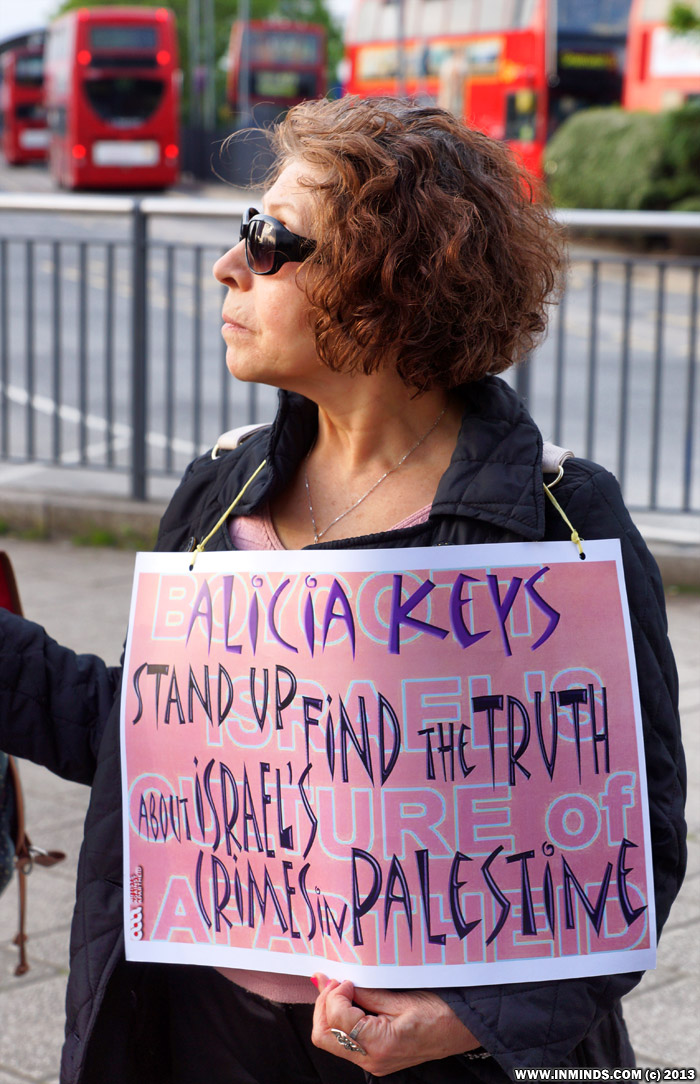 ALICIA KEYS
STAND UP FIND THE TRUTH
ABOUT ISRAEL'S
CRIMES IN PALESTINE
BOYCOTT
ISRAEL'S
CULTURE of
APARTHEID
WWW.INMINDS.COM (c) 2013